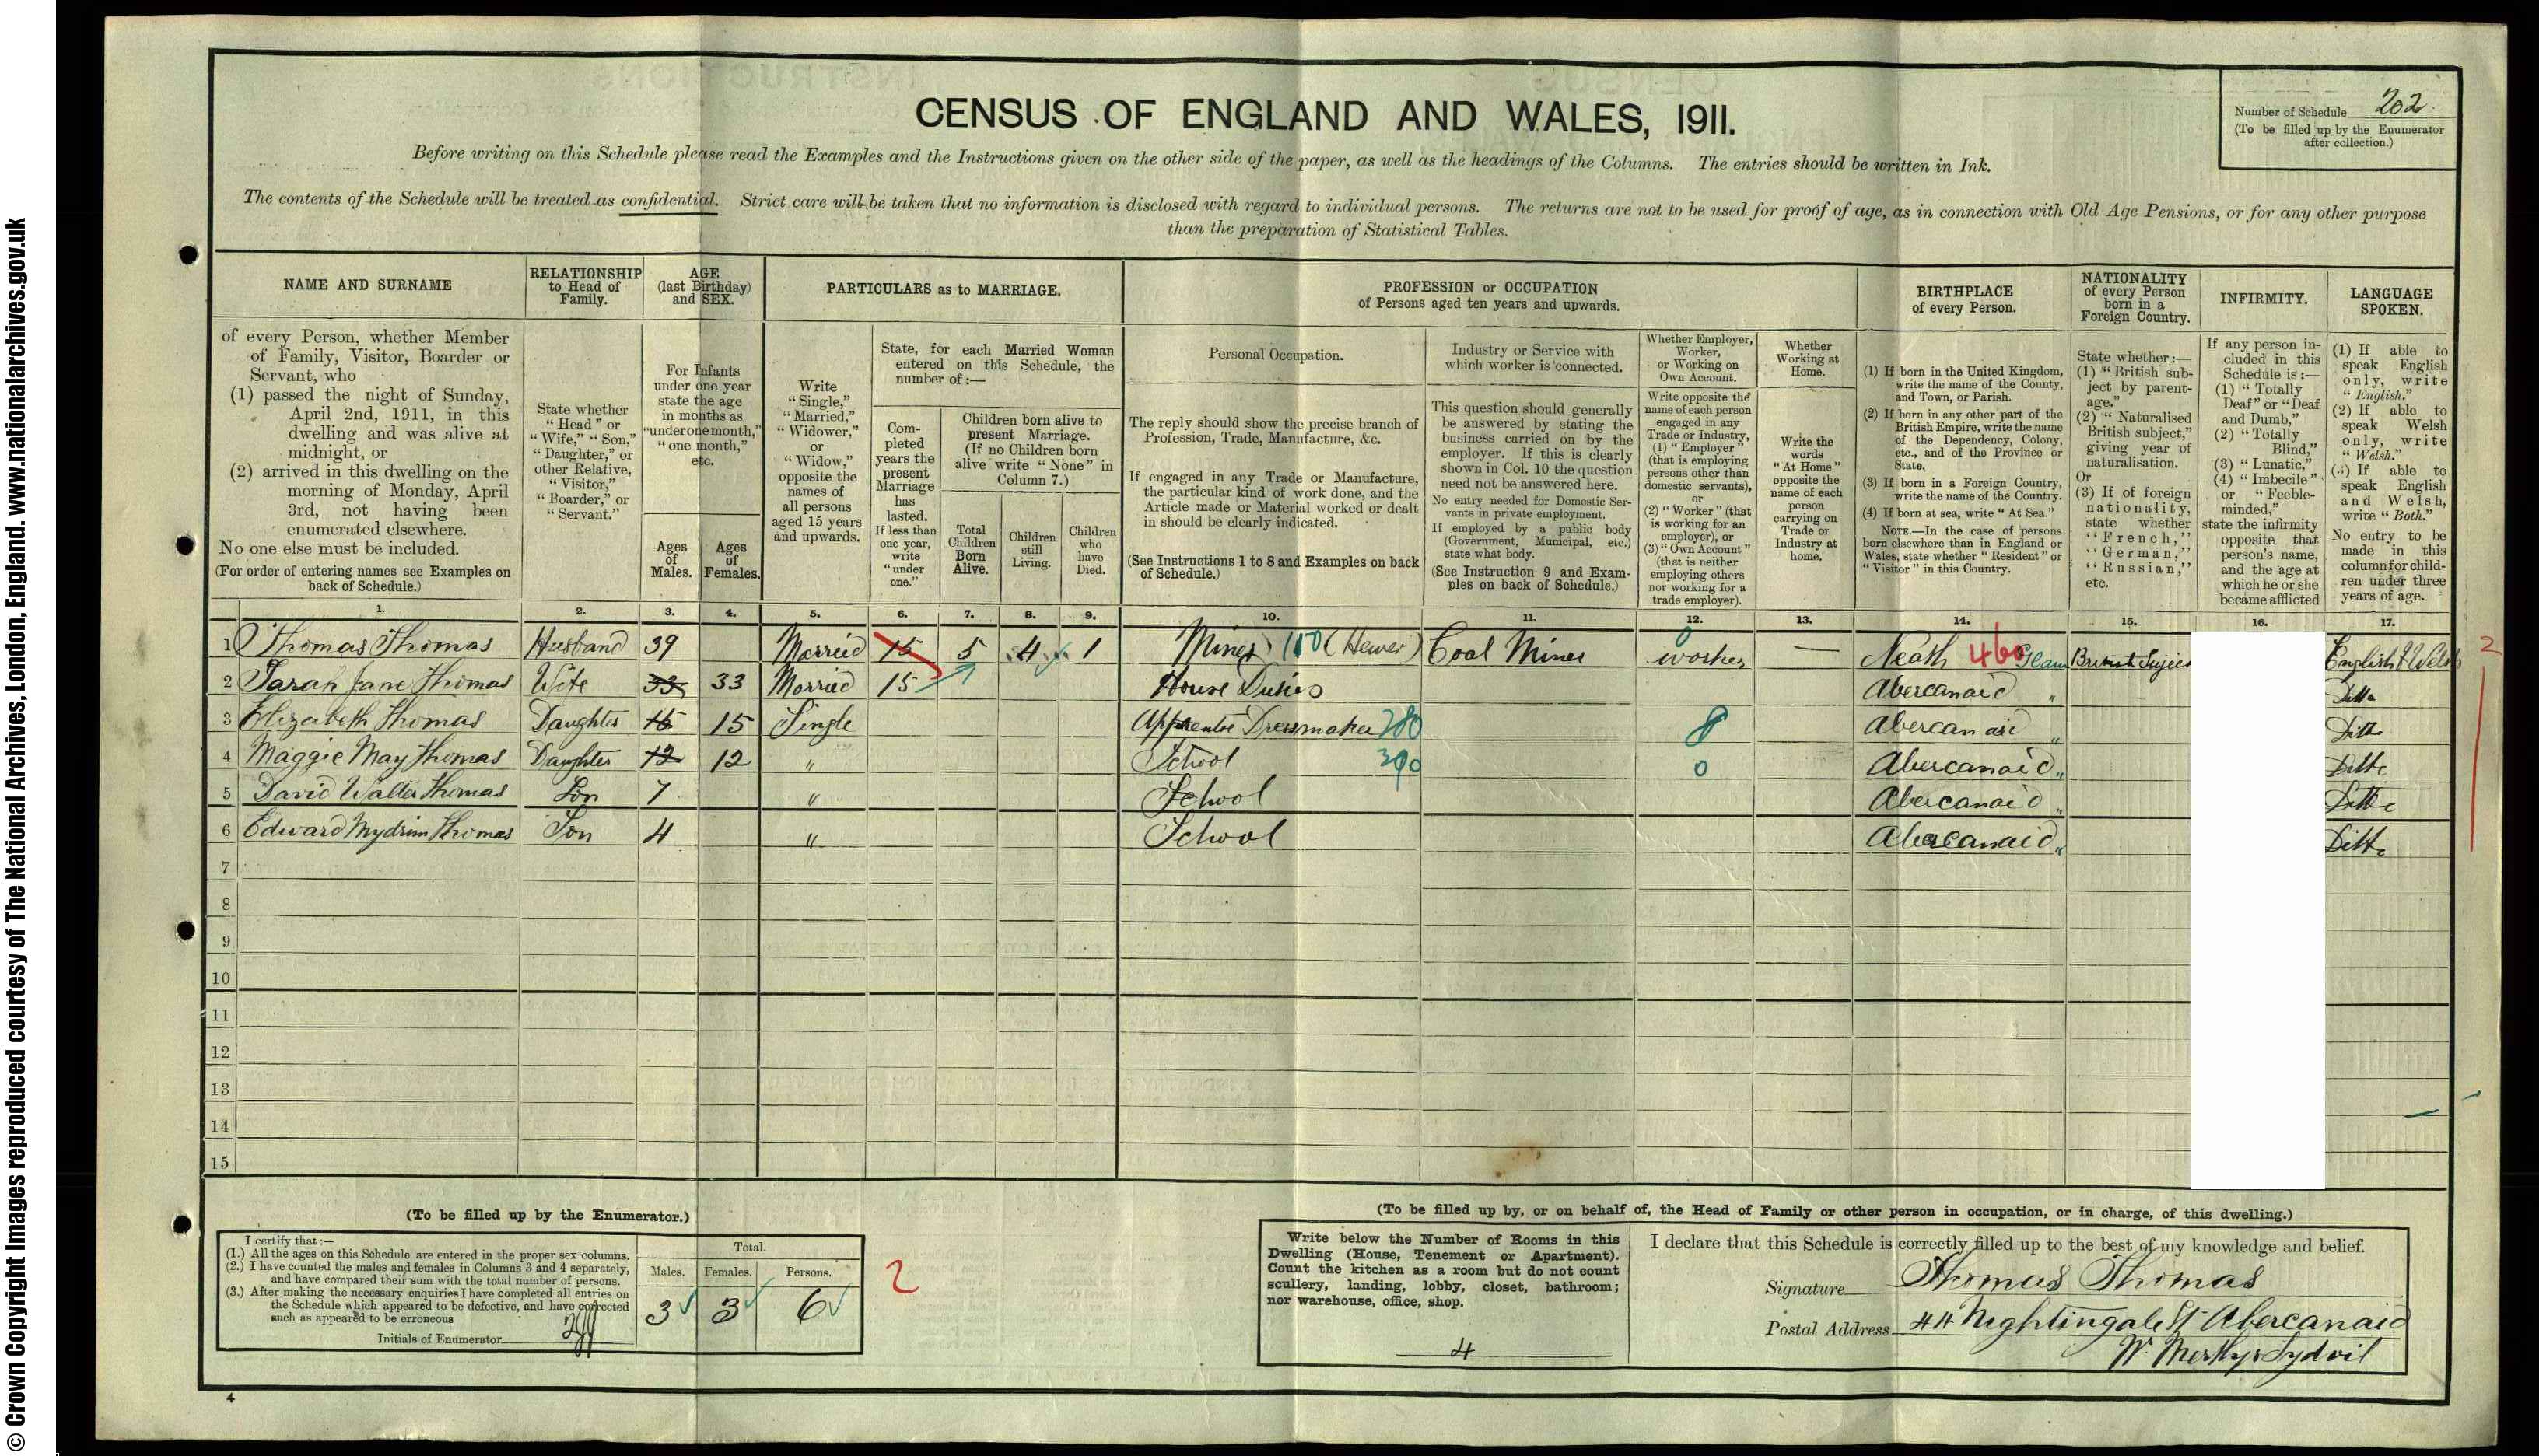 © Crown Copyright Images reproduced courtesy of The National Archives, London, England. www.nationalarchives.gov.uk
CENSUS OF ENGLAND AND WALES, 1911.
Number of Schedule 202.
(To be filled up by the Enumerator after collection.)
Before writing on this Schedule please read the Examples and the Instructions given on the other side of the paper, as well as the headings of the Columns. The entries should be written in Ink.
The contents of the Schedule will be treated as confidential. Strict care will be taken that no information is disclosed with regard to individual persons. The returns are not to be used for proof of age, as in connection with Old Age Pensions, or for any other purpose
than the preparation of Statistical Tables.
NAME AND SURNAME
of every Person, whether Member
of Family, Visitor, Boarder or
Servant, who
(1) passed the night of Sunday,
April 2nd, 1911, in this
dwelling and was alive at
midnight, or
(2) arrived in this dwelling on the
morning of Monday, April
3rd, not having been
enumerated elsewhere.
No one else must be included.
(For order of entering names see Examples on
back of Schedule.)
RELATIONSHIP
to Head of
Family.
State whether
"Head" or
"Wife," "Son,"
"Daughter," or
other Relative,
"Visitor,"
"Boarder," or
"Servant."
AGE
(last Birthday)
and SEX.
For Infants
under one year
state the age
in months as
"under one month,"
"one month,"
etc.
Ages
of
Males.
Ages
of
Females.
PARTICULARS as to MARRIAGE.
Write
"Single,"
"Married,"
"Widower,"
or
"Widow,"
opposite the
names of
all persons
aged 15 years
and upwards.
State, for each Married Woman
entered on this Schedule, the
number of :—
Com-
pleted
years the
present
Marriage
has
lasted.
If less than
one year,
write
"under
one."
Children born alive to
present Marriage.
(If no Children born
alive write "None" in
Column 7.)
Total
Children
Born
Alive.
Children
still
Living.
Children
who
have
Died.
PROFESSION or OCCUPATION
of Persons aged ten years and upwards.
Personal Occupation.
The reply should show the precise branch of
Profession, Trade, Manufacture, &c.
If engaged in any Trade or Manufacture,
the particular kind of work done, and the
Article made or Material worked or dealt
in should be clearly indicated.
(See Instructions 1 to 8 and Examples on back
of Schedule.)
Industry or Service with
which worker is connected.
This question should generally
be answered by stating the
business carried on by the
employer. If this is clearly
shown in Col. 10 the question
need not be answered here.
No entry needed for Domestic Ser-
vants in private employment.
If employed by a public body
(Government, Municipal, etc.)
state what body.
(See Instruction 9 and Exam-
ples on back of Schedule.)
Whether Employer,
Worker,
or Working on
Own Account.
Write opposite the
name of each person
engaged in any
Trade or Industry,
(1) "Employer"
(that is employing
persons other than
domestic servants),
or
(2) "Worker" (that
is working for an
employer), or
(3) "Own Account"
(that is neither
employing others
nor working for a
trade employer).
Whether
Working at
Home.
Write the
words
"At Home"
opposite the
name of each
person
carrying on
Trade or
Industry at
home.
BIRTHPLACE
of every Person.
(1) If born in the United Kingdom,
write the name of the County,
and Town, or Parish.
(2) If born in any other part of the
British Empire, write the name
of the Dependency, Colony,
etc., and of the Province or
State.
(3) If born in a Foreign Country,
write the name of the Country.
(4) If born at sea, write "At Sea."
NOTE.—In the case of persons
born elsewhere than in England or
Wales, state whether "Resident" or
"Visitor" in this Country.
NATIONALITY
of every Person
born in a
Foreign Country.
State whether :—
(1) "British sub-
ject by parent-
age."
(2) "Naturalised
British subject,"
giving year of
naturalisation.
Or
(3) If of foreign
nationality,
state whether
"French,"
"German,"
"Russian,"
etc.
INFIRMITY.
If any person in-
cluded in this
Schedule is :—
(1) "Totally
Deaf" or "Deaf
and Dumb,"
(2) "Totally
Blind,"
(3) "Lunatic,"
(4) "Imbecile"
or "Feeble-
minded,"
state the infirmity
opposite that
person's name,
and the age at
which he or she
became afflicted
LANGUAGE
SPOKEN.
(1) If able to
speak English
only, write
"English."
(2) If able to
speak Welsh
only, write
"Welsh."
(3) If able to
speak English
and Welsh,
write "Both."
No entry to be
made in this
column for child-
ren under three
years of age.
1. 2. 3. 4. 5. 6. 7. 8. 9. 10. 11. 12. 13. 14. 15. 16. 17.
1 Thomas Thomas Husband 39 Married 15 5 4 1 Miner (Hewer) Coal Miner worker — Neath 460 Glam British English & Welsh 2
2 Sarah Jane Thomas Wife 33 33 Married 15 House Duties Abercanaid " Ditto
3 Elizabeth Thomas Daughter 15 15 Single Apprentice Dressmaker 280 8 Abercanaid " Ditto
4 Maggie May Thomas Daughter 12 12 " School 390 0 Abercanaid " Ditto
5 David Walter Thomas Son 7 " School Abercanaid " Ditto
6 Edward Mydrim Thomas Son 4 " School Abercanaid " Ditto
7
8
9
10
11
12
13
14
15
(To be filled up by the Enumerator.)
I certify that :—
(1.) All the ages on this Schedule are entered in the proper sex columns.
(2.) I have counted the males and females in Columns 3 and 4 separately,
and have compared their sum with the total number of persons.
(3.) After making the necessary enquiries I have completed all entries on
the Schedule which appeared to be defective, and have corrected
such as appeared to be erroneous
Initials of Enumerator
Total.
Males. Females. Persons.
3 3 6
2
(To be filled up by, or on behalf of, the Head of Family or other person in occupation, or in charge, of this dwelling.)
Write below the Number of Rooms in this
Dwelling (House, Tenement or Apartment).
Count the kitchen as a room but do not count
scullery, landing, lobby, closet, bathroom;
nor warehouse, office, shop.
4
I declare that this Schedule is correctly filled up to the best of my knowledge and belief.
Signature Thomas Thomas
Postal Address 44 Nightingale St Abercanaid
Nr Merthyr Tydvil
4